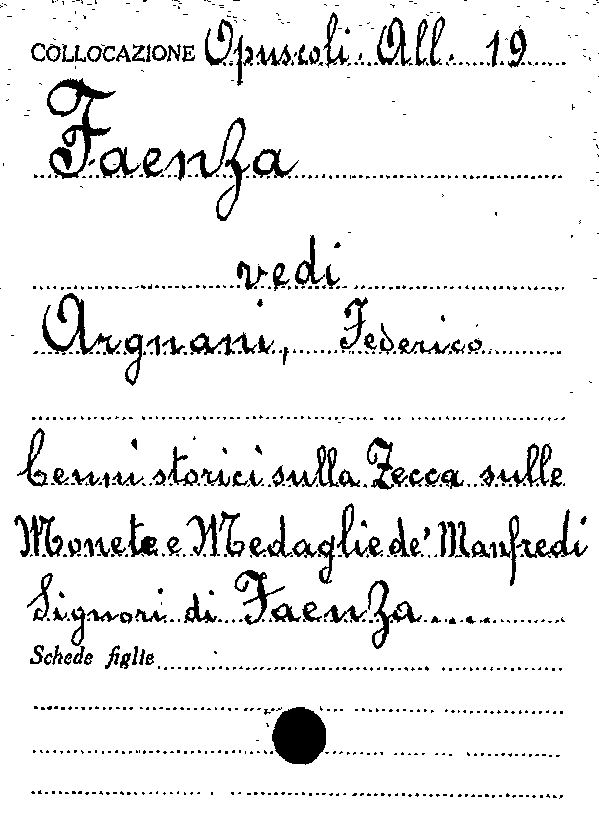 COLLOCAZIONE Opuscoli. All. 19
Faenza
vedi
Argnani, Federico
Cenni storici sulla Zecca sulle
Monete e Medaglie de' Manfredi
Signori di Faenza....
Schede figlie